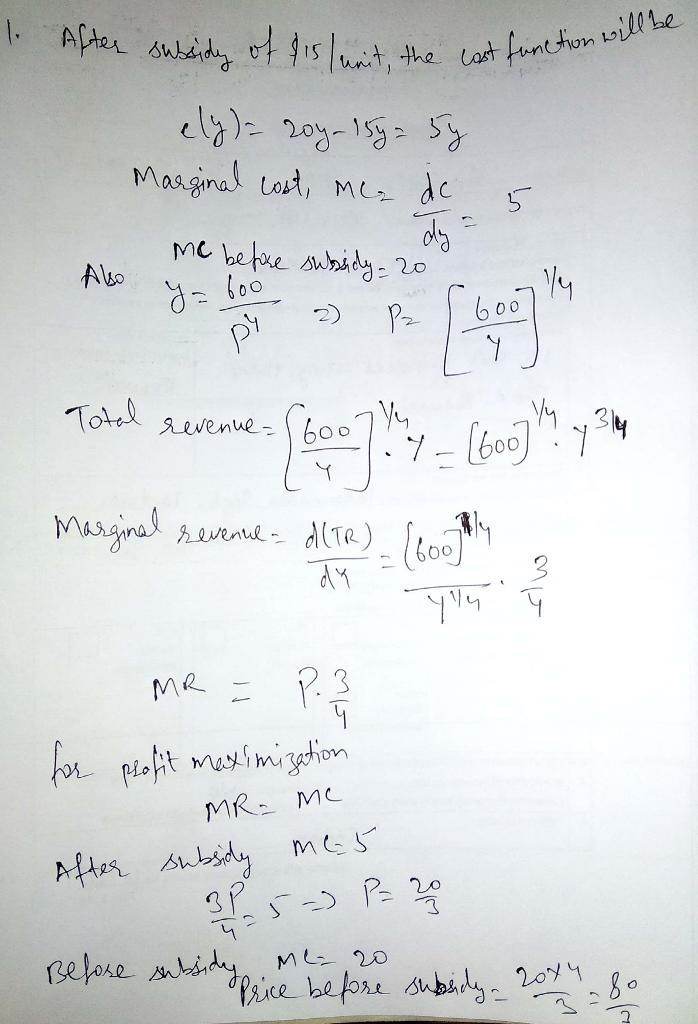 1. After subsidy of $15/unit, the cost function will be
c(y) = 20y - 15y = 5y
Marginal cost, MC = dc/dy = 5
MC before subsidy = 20
Also y = 600/p^4 => P = [600/y]^1/4
Total revenue = [600/y]^1/4 . y = [600]^1/4 . y^3/4
Marginal revenue = d(TR)/dy = [600]^1/4 / y^1/4 . 3/4
MR = P. 3/4
for profit maximization
MR = MC
After subsidy MC = 5
3P/4 = 5 => P = 20/3
Before subsidy MC = 20
Price before subsidy = 20x4/3 = 80/3